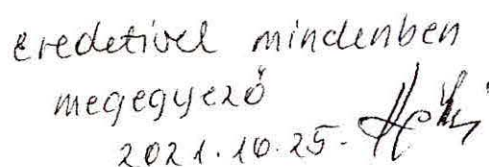 eredetivel mindenben
megegyező
2021.10.25.